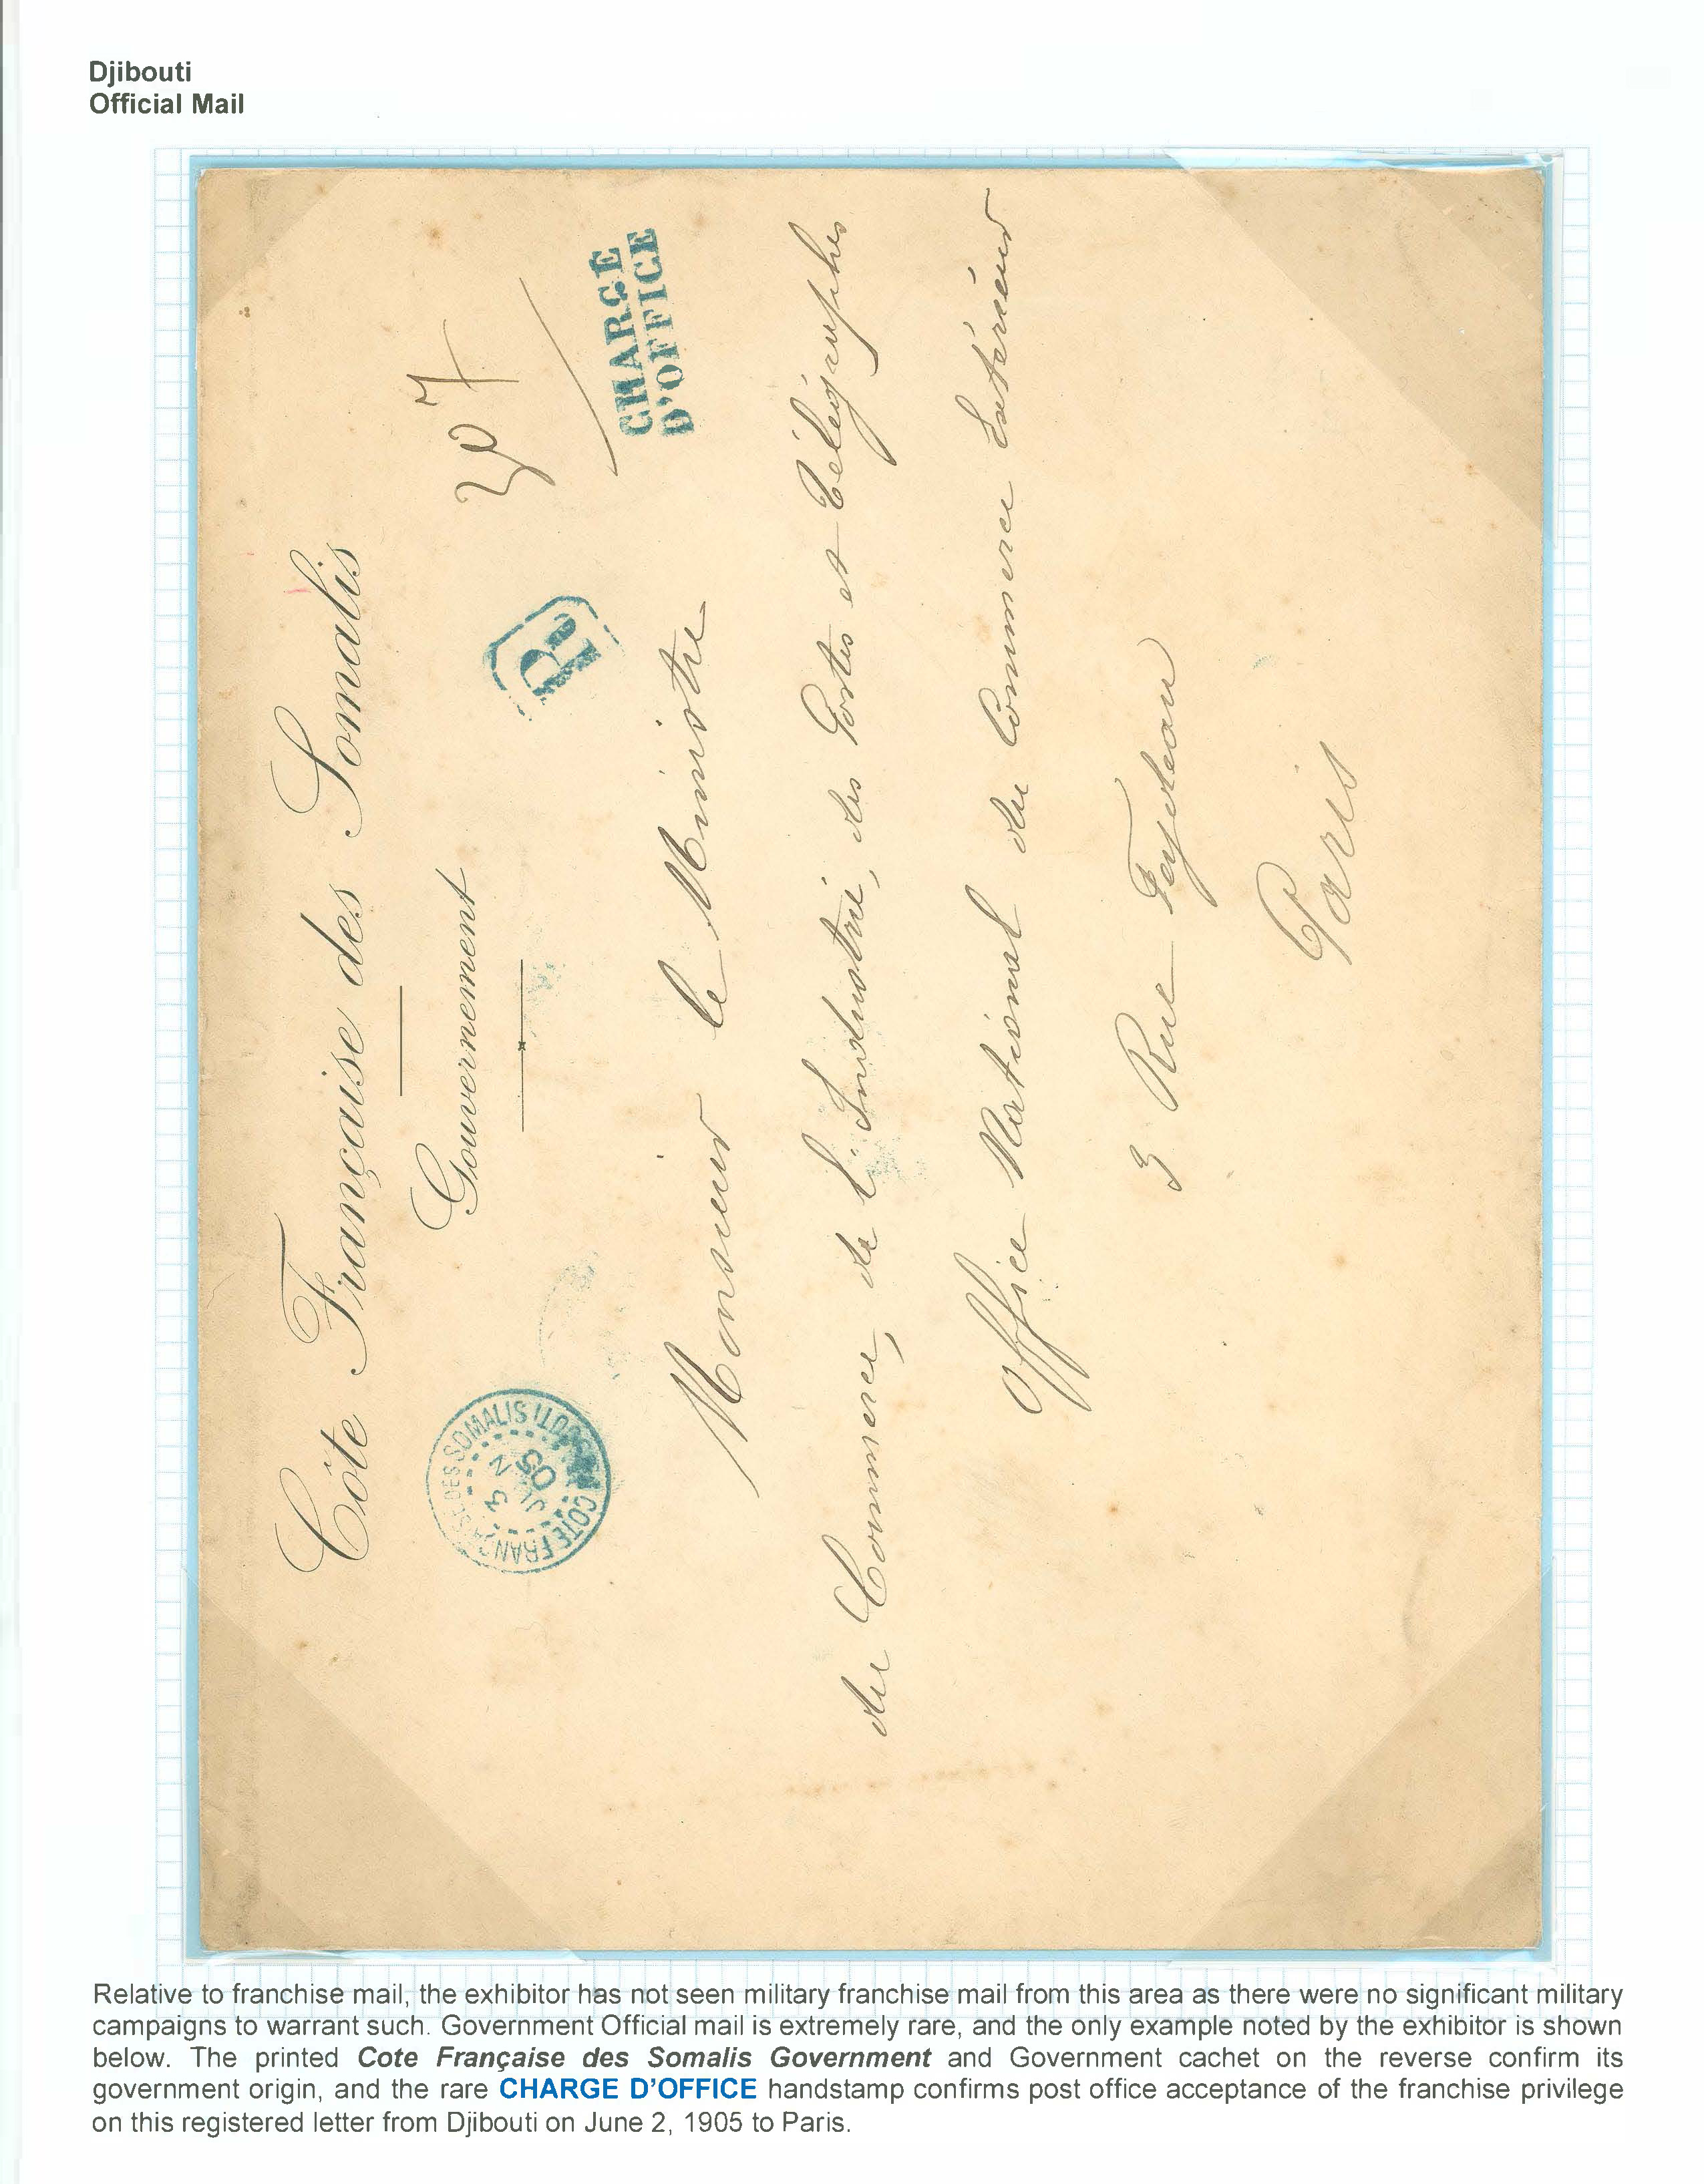 Djibouti
Official Mail
Côte Française des Somalis
Gouvernement
R
CHARGE
D'OFFICE
COTE FRANÇAISE DES SOMALIS DJIBOUTI
05
Monsieur le Ministre
du Commerce, de l'Industrie, des Postes et Télégraphes
Office National du Commerce Extérieur
3 Rue Feydeau
Paris
Relative to franchise mail, the exhibitor has not seen military franchise mail from this area as there were no significant military
campaigns to warrant such. Government Official mail is extremely rare, and the only example noted by the exhibitor is shown
below. The printed Cote Française des Somalis Government and Government cachet on the reverse confirm its
government origin, and the rare CHARGE D'OFFICE handstamp confirms post office acceptance of the franchise privilege
on this registered letter from Djibouti on June 2, 1905 to Paris.